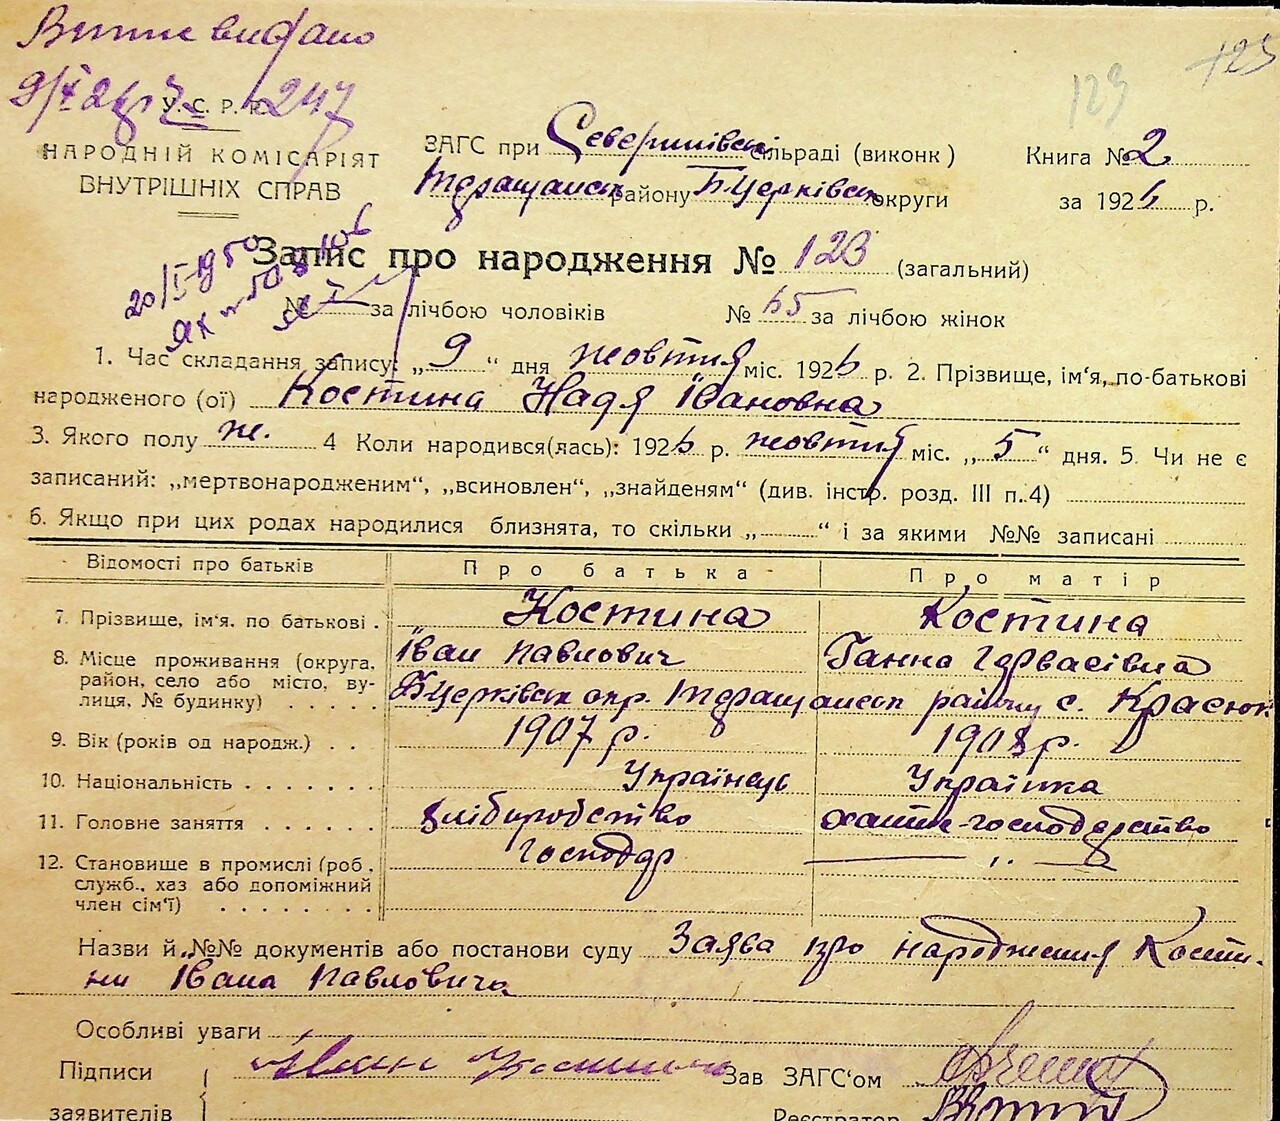 Витяг видано
123
125
9/X 26 р. 247
У. С. Р. Р.
НАРОДНІЙ КОМІСАРІЯТ
ВНУТРІШНІХ СПРАВ
ЗАГС при Северинівськ сільраді (виконк)
Таращанськ району Б.Церківськ округи
Книга № 2
за 1926 р.
20/I-1950
Запис про народження № 123 (загальний)
№ за лічбою чоловіків № 65 за лічбою жінок
1. Час складання запису: „ 9 “ дня жовтня міс. 1926 р. 2. Прізвище, ім‘я, по-батькові
народженого (ої) Костина Надя Івановна
3. Якого полу ж. 4 Коли народився(лась): 1926 р. жовтня міс. „ 5 “ дня. 5. Чи не є
записаний: „мертвонародженим“, „всиновлен“, „знайденям“ (див. інстр. розд. III п. 4)
6. Якщо при цих родах народилися близнята, то скільки „ “ і за якими №№ записані
Відомості про батьків Про батька Про матір
7. Прізвище, ім‘я. по батькові . Костина Костина
Іван Павлович Ганна Герваcівна
8. Місце проживання (округа,
район, село або місто, ву-
лиця, № будинку) . . . . . Б.Церківськ окр. Таращанськ району с. Красюк
9. Вік (років од народж.) . . 1907 р. 1908 р.
10. Національність . . . . . . . Українець Українка
11. Головне заняття . . . . . . хліборобство хатнє-господарство
12. Становище в промислі (роб.,
служб., хаз або допоміжний
член сім‘ї) . . . . . . . . господар „
Назви й №№ документів або постанови суду Заява про народження Кости-
ни Івана Павловича
Особливі уваги
Підписи
заявителів
Іван Костина
Зав ЗАГС‘ом
Реєстратор